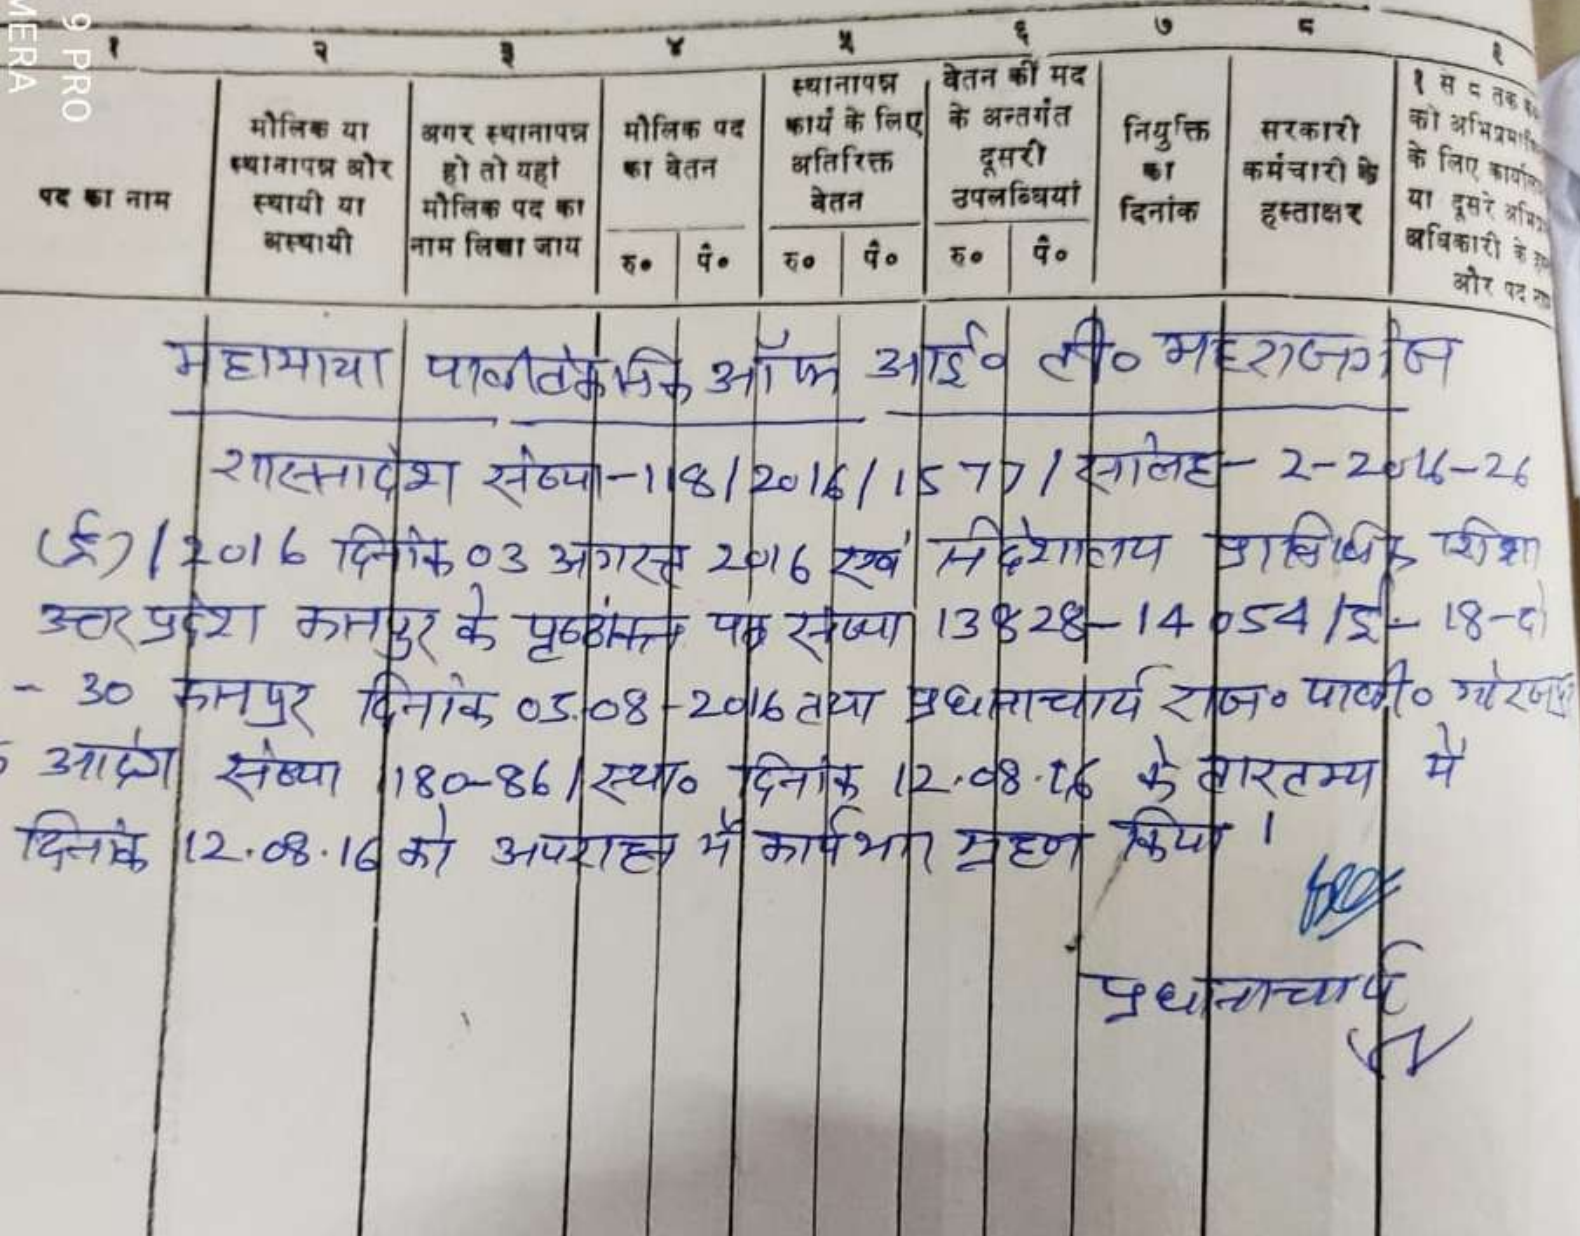 9 PRO
MERA
१ २ ३ ४ ५ ६ ७ ८ ९
पद का नाम
मौलिक या
स्थानापन्न और
स्थायी या
अस्थायी
अगर स्थानापन्न
हो तो यहां
मौलिक पद का
नाम लिखा जाय
मौलिक पद
का वेतन
रु० पै०
स्थानापन्न
कार्य के लिए
अतिरिक्त
वेतन
रु० पै०
वेतन की मद
के अन्तर्गत
दूसरी
उपलब्धियां
रु० पै०
नियुक्ति
का
दिनांक
सरकारी
कर्मचारी के
हस्ताक्षर
१ से ८ तक
को
के लिए
या दूसरे
अधिकारी के
और पद
महामाया पालीटेकनिक ऑफ आई० टी० महराजगंज
शासनादेश संख्या-118/2016/1577/सोलह-2-2016-26
(ई)/2016 दिनांक 03 अगस्त 2016 एवं निदेशालय प्राविधिक शिक्षा
उत्तर प्रदेश कानपुर के पृष्ठांकन पत्र संख्या 13828-14054/ई-18-दो
- 30 कानपुर दिनांक 05.08-2016 तथा प्रधानाचार्य राज० पाली० गोरखपुर
के आदेश संख्या 1180-86/स्था० दिनांक 12.08.16 के तारतम्य में
दिनांक 12.08.16 को अपराह्न में कार्यभार ग्रहण किया।
प्रधानाचार्य